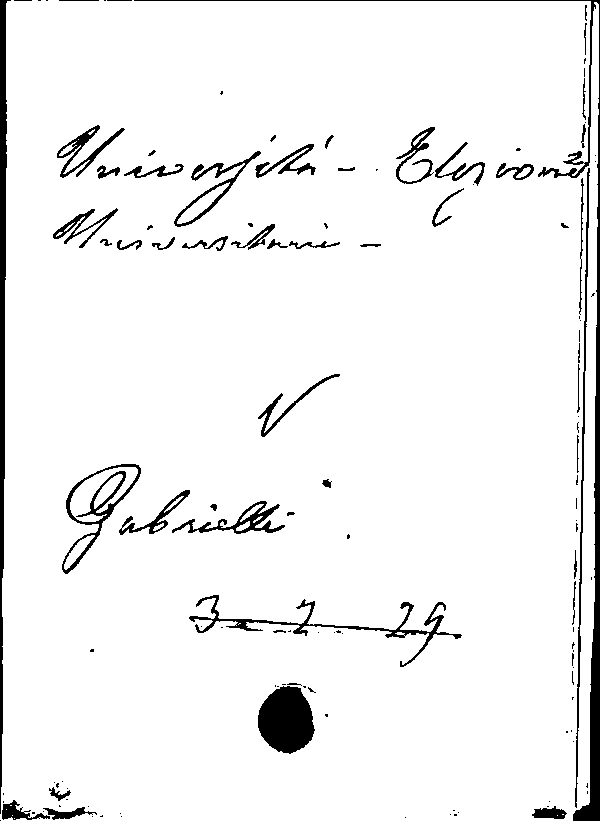 Università - Elezioni
Universitarie -
V
Gabrielli
3 2 29